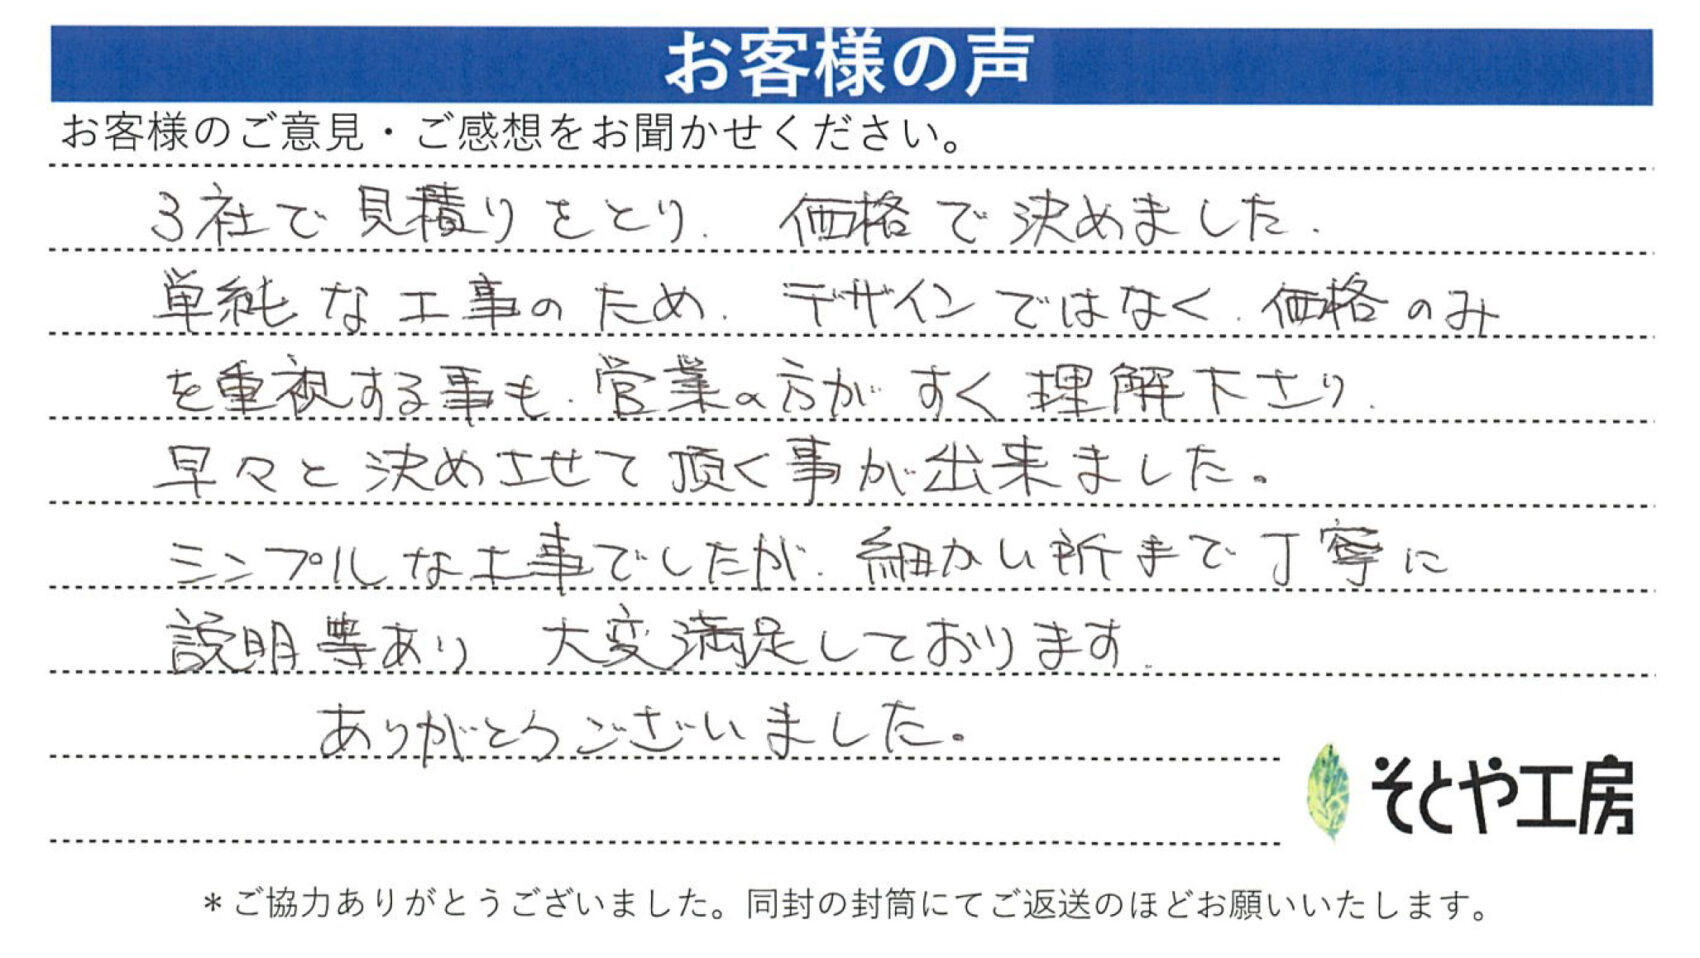 お客様の声
お客様のご意見・ご感想をお聞かせください。
3社で見積りをとり. 価格で決めました.
単純な工事のため. デザインではなく. 価格のみ
を重視する事も. 営業の方がすぐ理解下さり.
早々と決めさせて頂く事が出来ました。
シンプルな工事でしたが. 細かい所まで丁寧に
説明等あり 大変満足しております.
ありがとうございました。
そとや工房
＊ご協力ありがとうございました。同封の封筒にてご返送のほどお願いいたします。